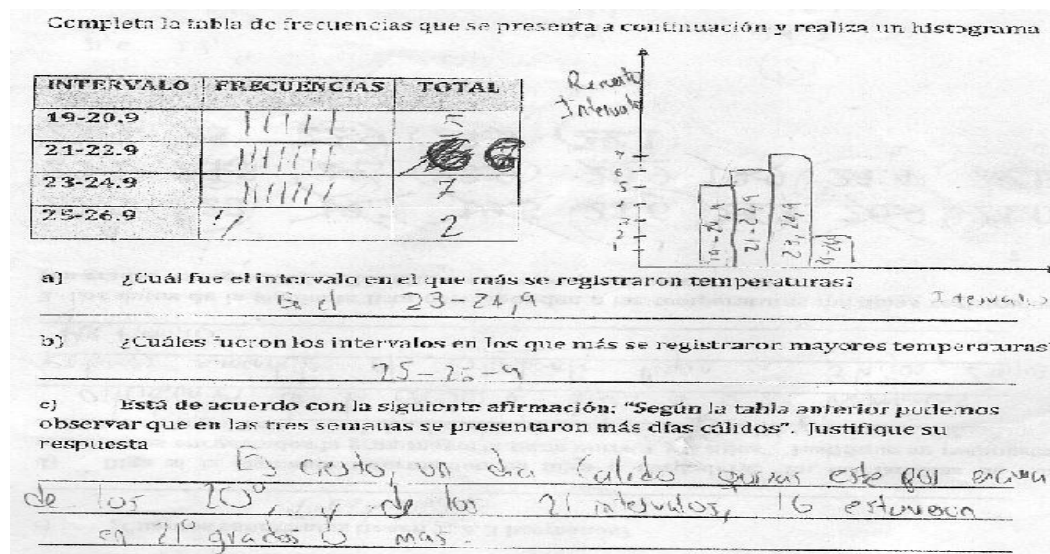 Completa la tabla de frecuencias que se presenta a continuación y realiza un histograma
INTERVALO FRECUENCIAS TOTAL
19-20.9 5
21-22.9
23-24.9 7
25-26.9 2
7
6
5
2
1
21-24,9
23,24,9
a) ¿Cuál fue el intervalo en el que más se registraron temperaturas?
23-24,9
b) ¿Cuáles fueron los intervalos en los que más se registraron mayores temperaturas
25-26-9
c) Está de acuerdo con la siguiente afirmación: "Según la tabla anterior podemos
observar que en las tres semanas se presentaron más días cálidos". Justifique su
respuesta
cierto, un dia Calido este por
de los 20°, y de los 21 intervalos, 16 estuvieron
en 21° grados o mas.